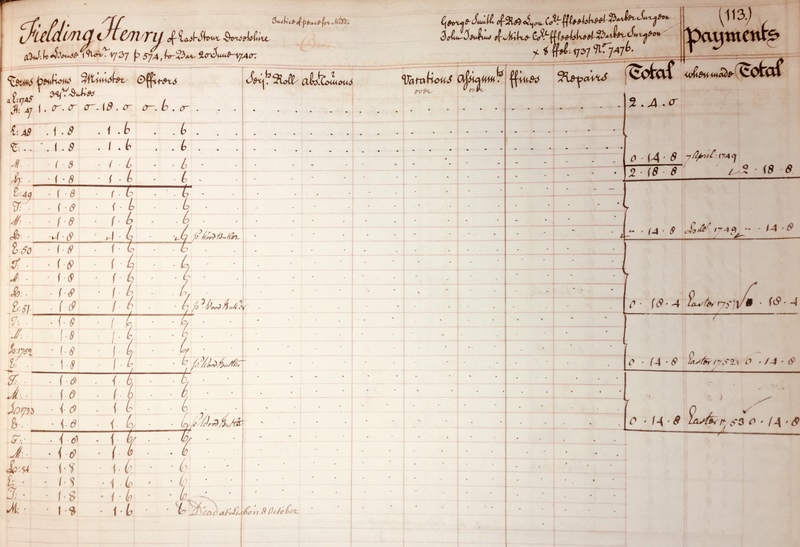 (113.)
Fielding Henry of East Stour Dorsetshire
Justice of peace for Midd.
George Smith of Red Lyon Cort ffleetstreet Barber Surgeon
John Jenkins of Mitre Cort ffleetstreet Barber Surgeon
admt. to House 1 Novr. 1737 p 574, to Bar 20 June 1740.
× 8 ffeb: 1737 No. 7476.
Payments
Terms pentions Minister Officers Vacations Assignmts ffines Repairs Total when made Total
over over
H: 47 1 . 0 . 0 0 . 18 . 0 0 . 6 . 0 2 . 4 . 0
E: 48 1 . 8 1 . 6 6
T: 1 . 8 1 . 6 6
M: 1 . 8 1 . 6 6 0 . 14 . 8 7 April 1749
H: 1 . 8 1 . 6 6 2 . 18 . 8 2 . 18 . 8
E: 49 1 . 8 1 . 6 6
T: 1 . 8 1 . 6 6
M: 1 . 8 1 . 6 6
H: 1 . 8 1 . 6 6 pd Wood Butler 14 . 8 1749 14 . 8
E: 50 1 . 8 1 . 6 6
T: 1 . 8 1 . 6 6
M: 1 . 8 1 . 6 6
H: 1 . 8 1 . 6 6
E: 51 1 . 8 1 . 6 6 pd Wood Butler 0 . 18 . 4 Easter 1751 18 . 4
T: 1 . 8 1 . 6 6
M: 1 . 8 1 . 6 6
H: 1752 1 . 8 1 . 6 6
E: 1 . 8 1 . 6 6 pd Wood Butler 0 . 14 . 8 Easter 1752 0 . 14 . 8
T: 1 . 8 1 . 6 6
M: 1 . 8 1 . 6 6
H: 1753 1 . 8 1 . 6 6
E: 1 . 8 1 . 6 6 pd Wood Butler 0 . 14 . 8 Easter 1753 0 . 14 . 8
T: 1 . 8 1 . 6 6
M: 1 . 8 1 . 6 6
H: 54 1 . 8 1 . 6 6
E: 1 . 8 1 . 6 6
T: 1 . 8 1 . 6 6
M: 1 . 8 1 . 6 6 Dead at Lisbon 8 October